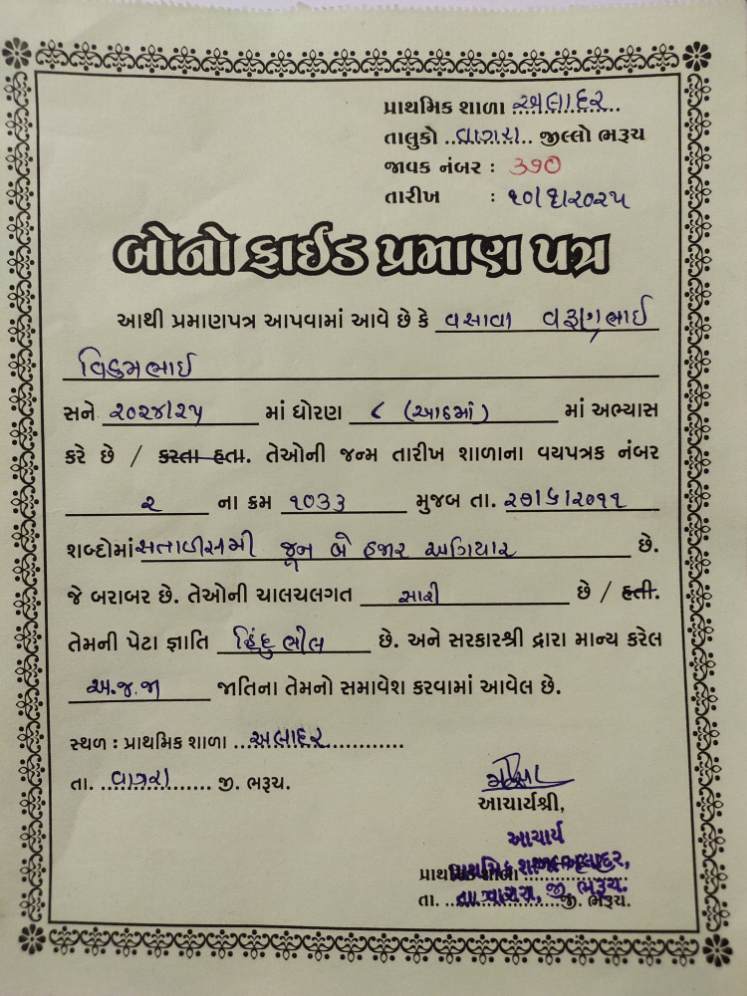 પ્રાથમિક શાળા અલાદર
તાલુકો વાગરા જીલ્લો ભરૂચ
જાવક નંબર : ૩૧૦
તારીખ : ૧૦/૧/૨૦૨૫
બોનોફાઈડ પ્રમાણ પત્ર
આથી પ્રમાણપત્ર આપવામાં આવે છે કે વસાવા વરૂણભાઈ
વિક્રમભાઈ
સને ૨૦૨૪/૨૫ માં ધોરણ ૮ (આઠમાં) માં અભ્યાસ
કરે છે / કરતા હતા. તેઓની જન્મ તારીખ શાળાના વયપત્રક નંબર
૨ ના ક્રમ ૧૦૩૩ મુજબ તા. ૨૭/૬/૨૦૧૧
શબ્દોમાં સતાવીસમી જૂન બે હજાર અગિયાર છે.
જે બરાબર છે. તેઓની ચાલચલગત સારી છે / હતી.
તેમની પેટા જ્ઞાતિ હિંદુ ભીલ છે. અને સરકારશ્રી દ્વારા માન્ય કરેલ
અ.જ.જા જાતિના તેમનો સમાવેશ કરવામાં આવેલ છે.
સ્થળ : પ્રાથમિક શાળા અલાદર
તા. વાગરા જી. ભરૂચ.
આચાર્યશ્રી,
આચાર્ય
પ્રાથમિક શાળા અલાદર,
તા. વાગરા, જી. ભરૂચ.